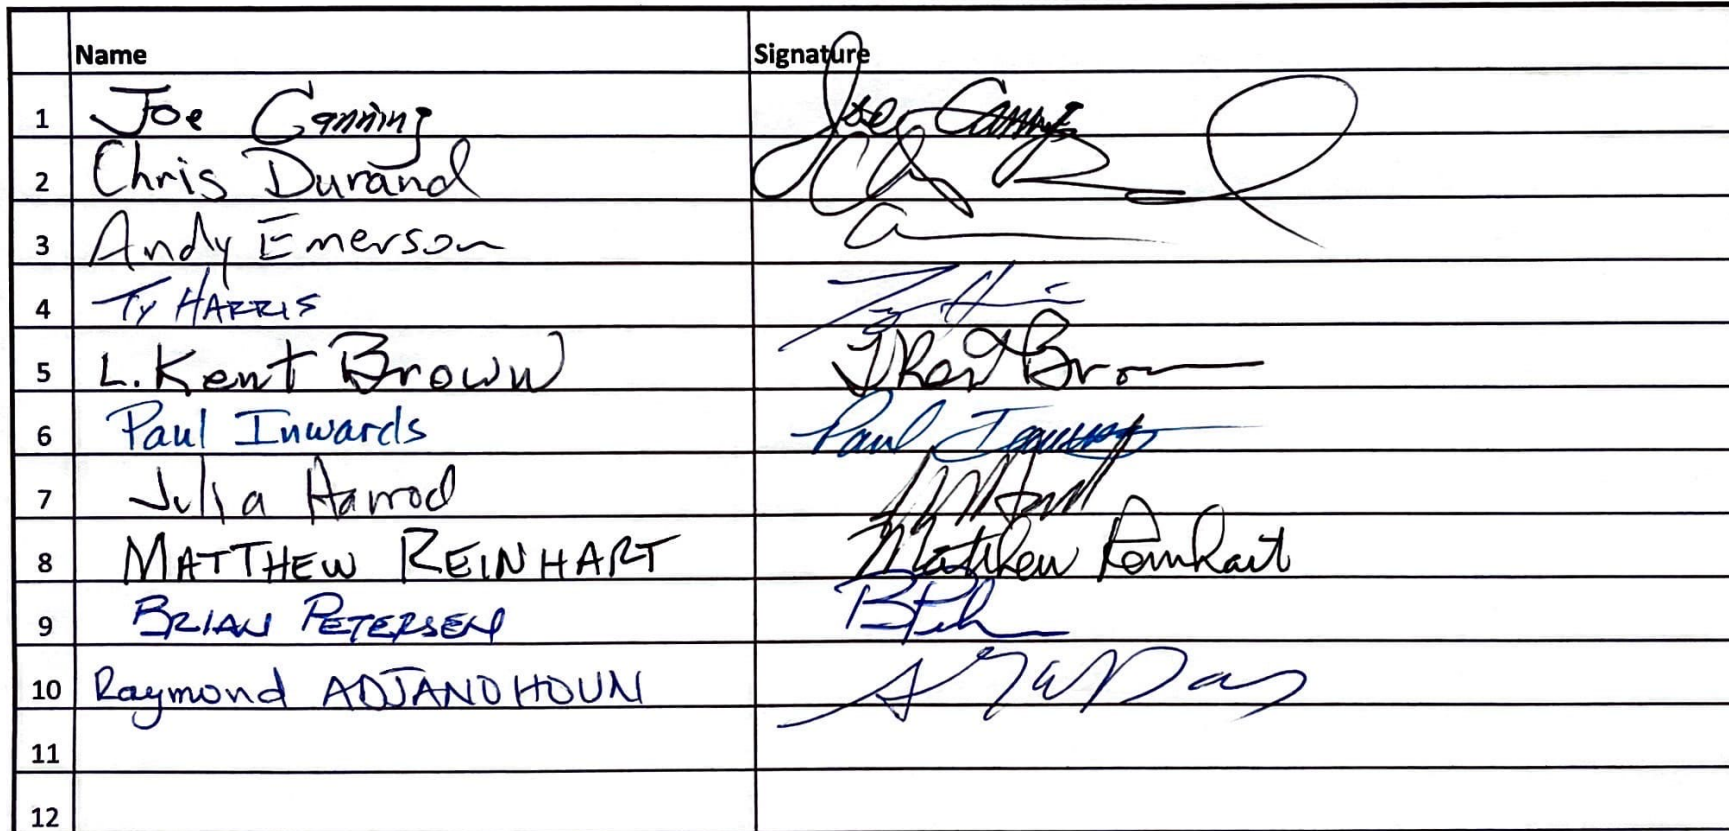 Name Signature
1 Joe Canning Joe Canning
2 Chris Durand
3 Andy Emerson
4 Ty HARRIS Ty Harris
5 L. Kent Brown L Kent Brown
6 Paul Inwards Paul Inwards
7 Julia Harrod
8 MATTHEW REINHART Matthew Reinhart
9 BRIAN PETERSEN
10 Raymond ADJANOHOUN
11
12